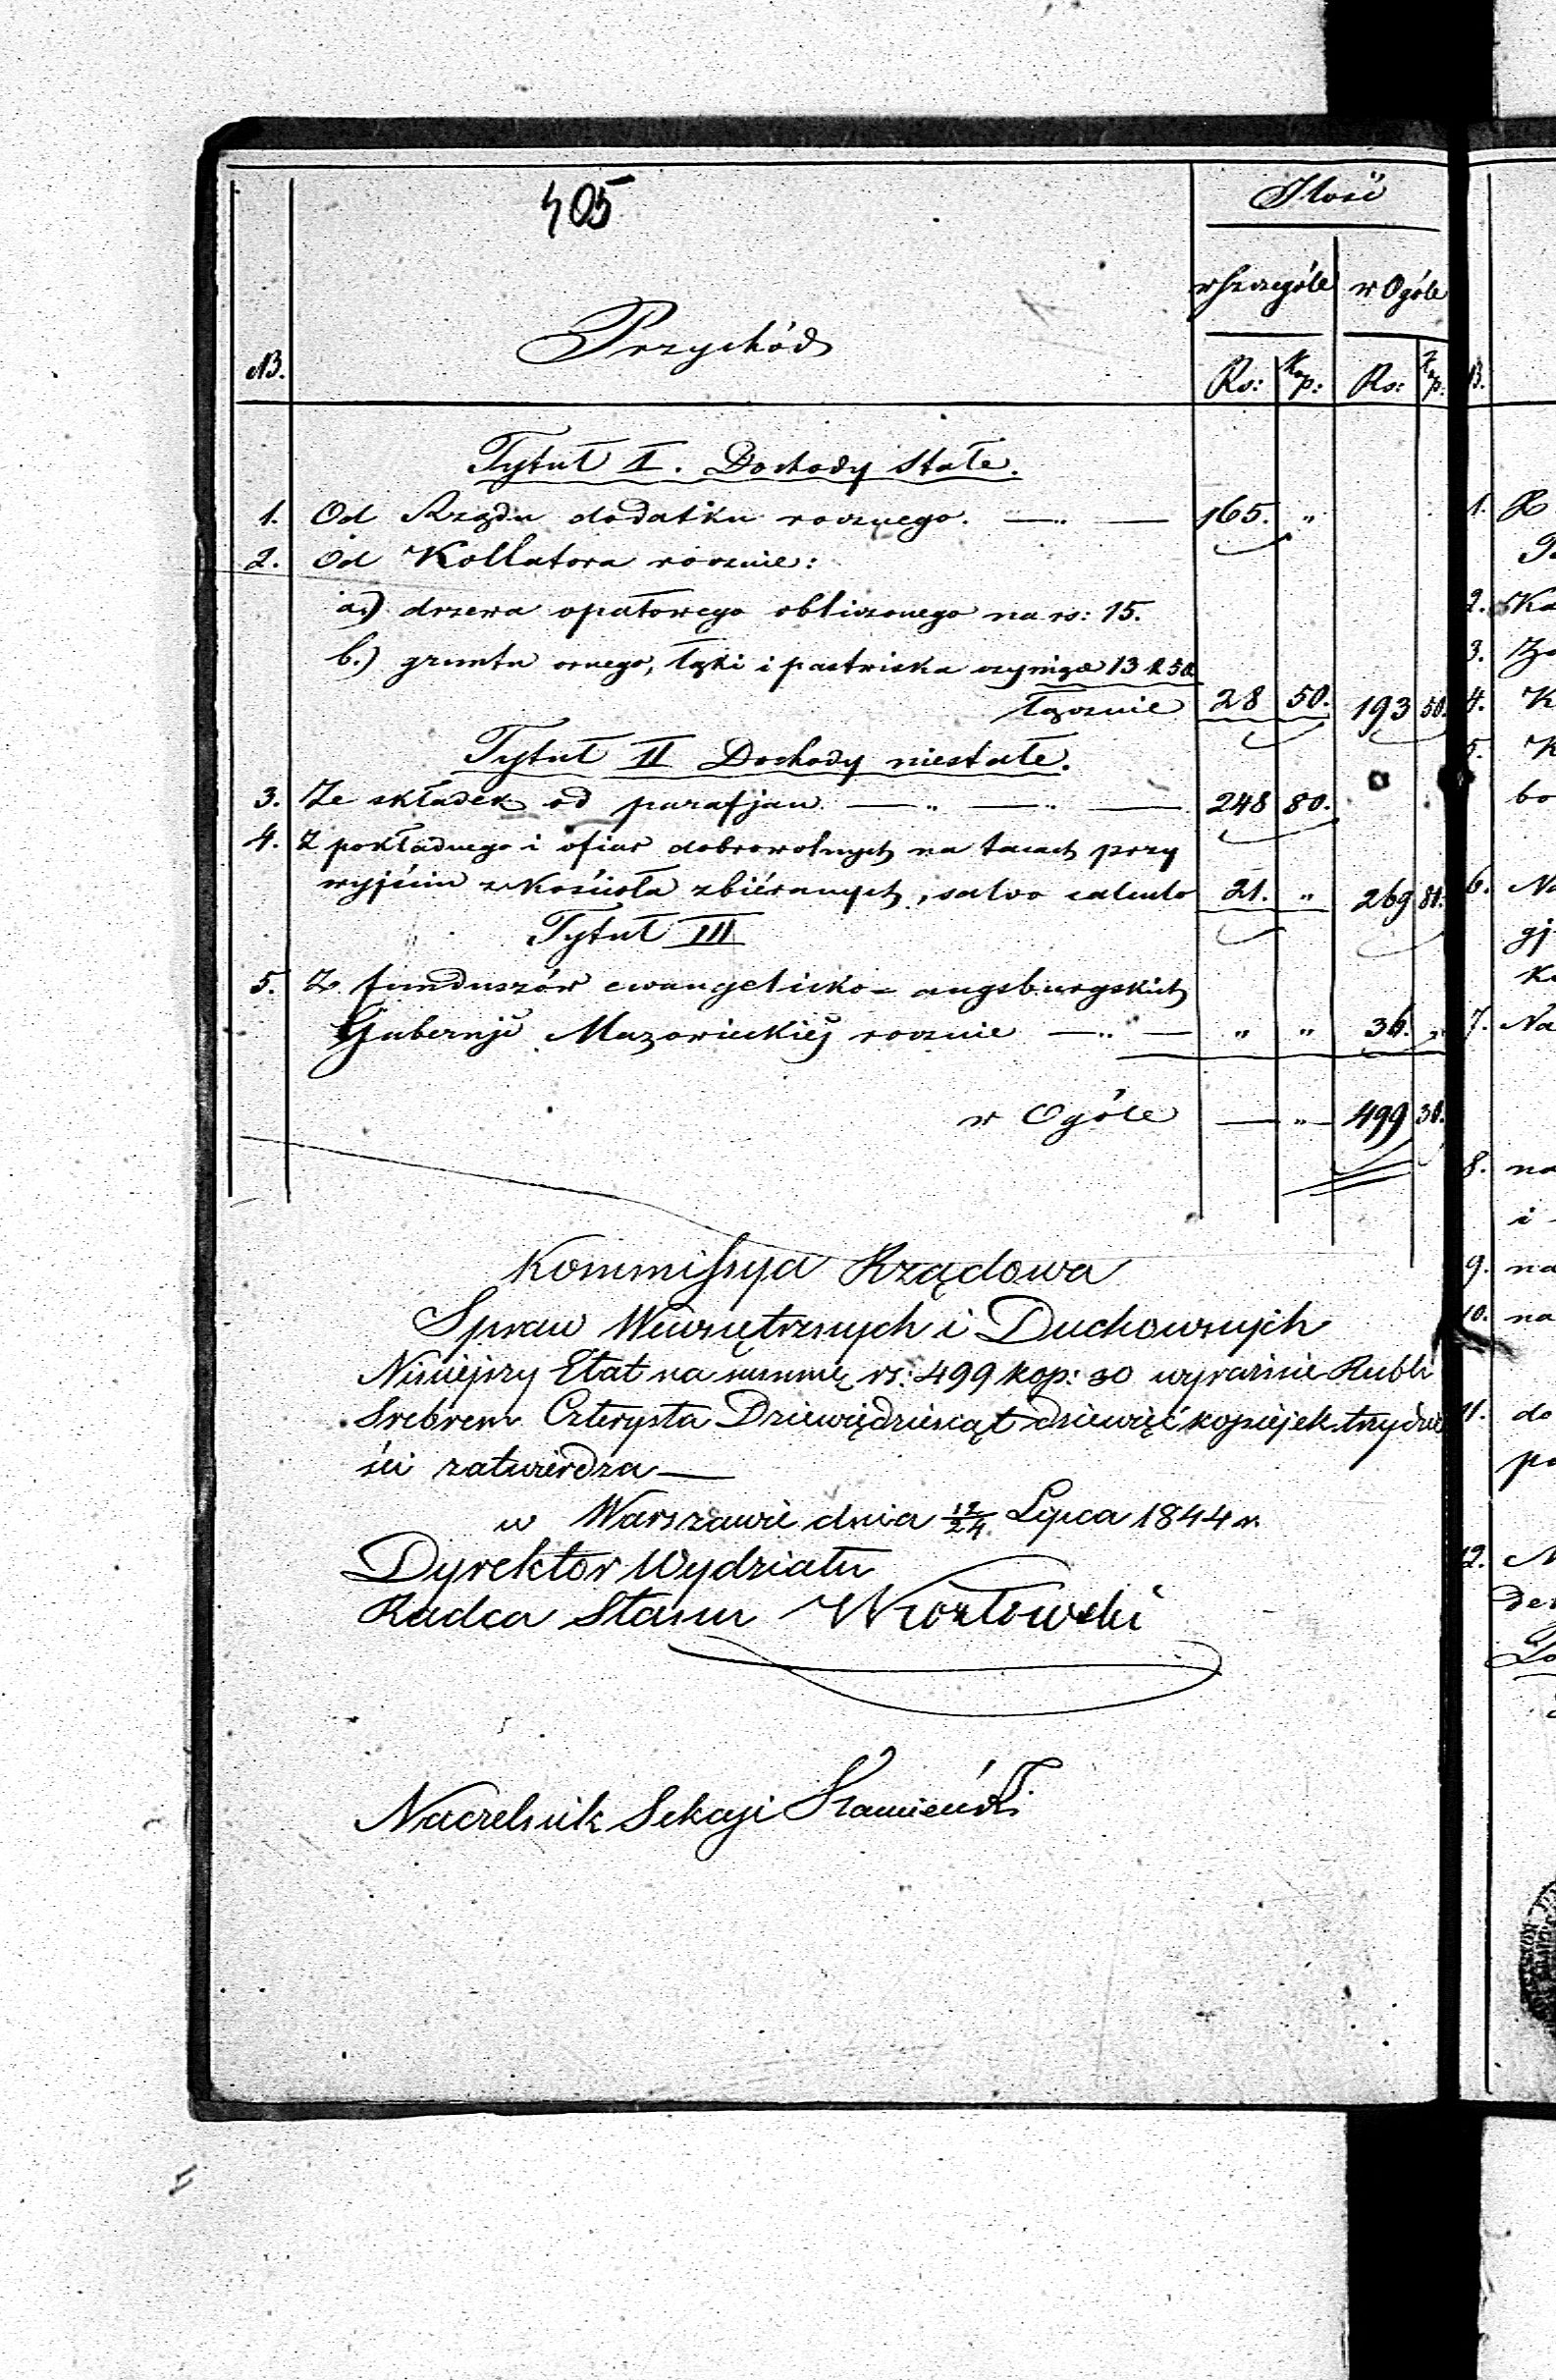 405
Ilość
w szczególe w Ogóle
NB. Przychód Rs: Kop: Rs: Kop.
Tytuł I. Dochody Stałe.
1. Od Rządu dodatku rocznego. — „ — 165. „
2. Od Kollatora rocznie:
a.) drzewa opałowego obliczonego na rs: 15.
b.) gruntu ornego, łąki i pastwiska czyniące 13 k 50
łącznie 28 50. 193 50.
Tytuł II Dochody niestałe.
3. Ze składek od parafjan — „ — „ — 248 80.
4. Z pokładnego i ofiar dobrowolnych na tacach przy
wyjściu z Kościoła zbiéranych, salvo calculo 21. „ 269 80.
Tytuł III
5. Z funduszów ewangelicko-augsburgskich
Gubernji Mazowieckiéj rocznie — „ — „ „ 36. „
w Ogóle — „ — 499 30.
Kommissya Rządowa
Spraw Wewnętrznych i Duchownych
Niniejszy Etat na summę rs: 499 kop: 30 wyraźnie Rubli
Srebrem Czterysta Dziewiędziesiąt dziewięć kopiejek trzydzie
ści zatwierdza —
w Warszawie dnia 12/24 Lipca 1844 r.
Dyrektor Wydziału
Radca Stanu WKozłowski
Naczelnik Sekcyi
B.
1.
2. Ka
3.
4. K
5. K
bo
6. Na
gj
7. Na
8. na
i
9. na
10. na
11. do
po
12.